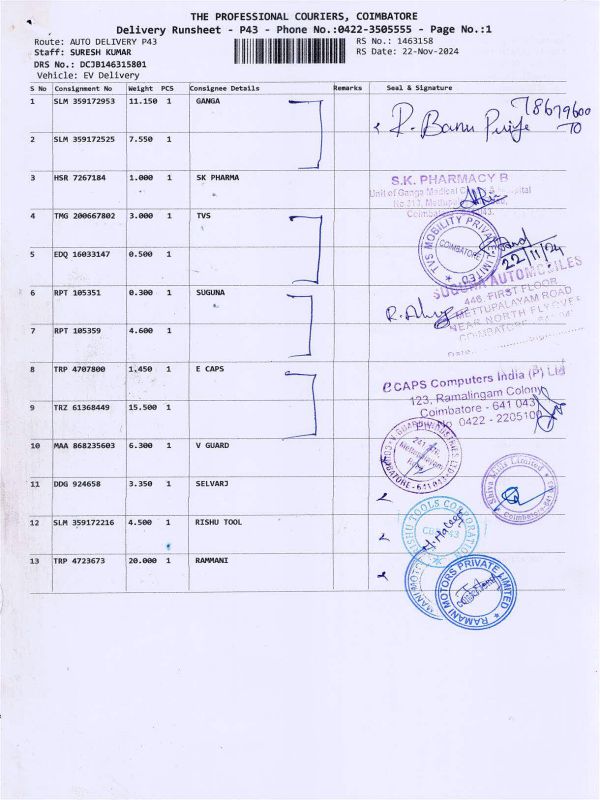 THE PROFESSIONAL COURIERS, COIMBATORE
Delivery Runsheet - P43 - Phone No.:0422-3505555 - Page No.:1
Route: AUTO DELIVERY P43
Staff: SURESH KUMAR
DRS No.: DCJB146315801
Vehicle: EV Delivery
RS No.: 1463158
RS Date: 22-Nov-2024
S No Consignment No Weight PCS Consignee Details Remarks Seal & Signature
1 SLM 359172953 11.150 1 GANGA
2 SLM 359172525 7.550 1
3 HSR 7267184 1.000 1 SK PHARMA
4 TMG 200667802 3.000 1 TVS
5 EDQ 16033147 0.500 1
6 RPT 105351 0.300 1 SUGUNA
7 RPT 105359 4.600 1
8 TRP 4707800 1.450 1 E CAPS
9 TRZ 61368449 15.500 1
10 MAA 868235603 6.300 1 V GUARD
11 DDG 924658 3.350 1 SELVARJ
12 SLM 359172216 4.500 1 RISHU TOOL
13 TRP 4723673 20.000 1 RAMMANI
R. Banu
S.K. PHARMACY B
Unit of Ganga Medical
TVS MOBILITY PRIVATE LIMITED
COIMBATORE
22/11/24
SUGUNA AUTOMOBILES
446 FIRST FLOOR
METTUPALAYAM ROAD
NEAR NORTH FLYOVER
COIMBATORE
Date
e CAPS Computers India (P) Ltd
123, Ramalingam Colony
Coimbatore - 641 043
No. 0422 - 2205100
COIMBATORE - 641 043
Limited
Coimbatore
RISHU TOOLS CORPORATION
RAMANI MOTORS PRIVATE LIMITED